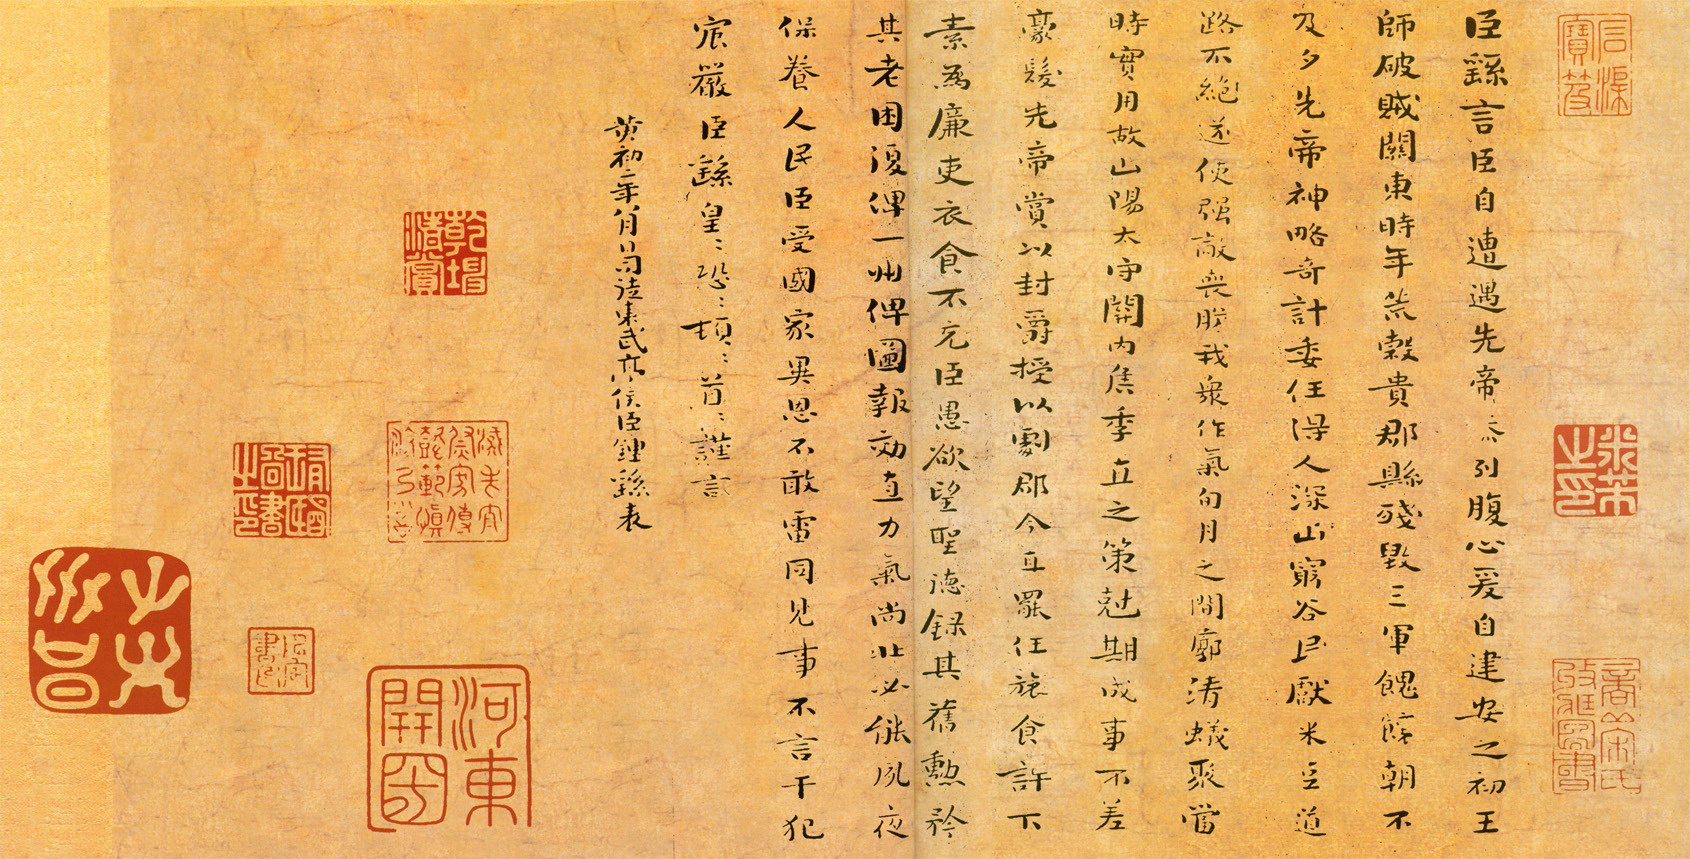 臣繇言臣自遭遇先帝忝列腹心爰自建安之初王
師破賊關東時年荒穀貴郡縣殘毀三軍餽饟朝不
及夕先帝神略奇計委任得人深山窮谷民獻米豆道
路不絕遂使强敵喪膽我衆作氣旬月之間廓清蟻聚當
時實用故山陽太守關內侯季直之策尅期成事不差
豪髮先帝賞以封爵授以劇郡今直罷任旅食許下
素為廉吏衣食不充臣愚欲望聖德錄其舊勳矜
其老困復俾一州俾圖報効直力氣尚壯必能夙夜
保養人民臣受國家異恩不敢雷同見事不言干犯
宸嚴臣繇皇〻恐〻頓〻首〻謹言
黄初二年八月日司徒東武亭侯臣鍾繇表
乾坤清賞
河東開國
米芾之印